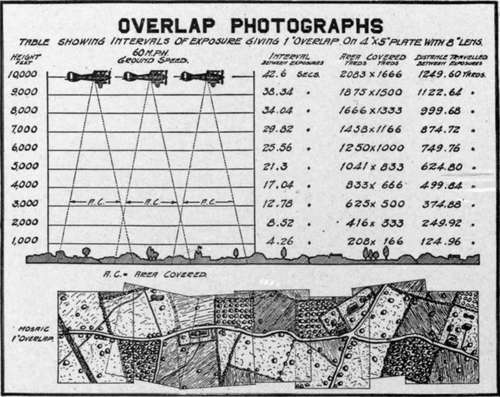 OVERLAP PHOTOGRAPHS
TABLE SHOWING INTERVALS OF EXPOSURE GIVING 1" OVERLAP. ON 4"X5" PLATE WITH 8" LENS.
HEIGHT FEET 60 M.P.H. GROUND SPEED. INTERVAL BETWEEN EXPOSURES AREA COVERED YARDS YARDS DISTANCE TRAVELLED BETWEEN EXPOSURES
10,000 42.6 SECS. 2083 X 1666 1249.60 YARDS
9,000 38.34 " 1875 X 1500 1122.64 "
8,000 34.04 " 1666 X 1333 999.68 "
7,000 29.82 " 1458 X 1166 874.72 "
6,000 25.56 " 1250 X 1000 749.76 "
5,000 21.3 " 1041 X 833 624.80 "
4,000 17.04 " 833 X 666 499.84 "
3,000 A.C. A.C. A.C. 12.78 " 625 X 500 374.88 "
2,000 8.52 " 416 X 333 249.92 "
1,000 4.26 " 208 X 166 124.96 "
A.C. = AREA COVERED.
MOSAIC
1" OVERLAP.